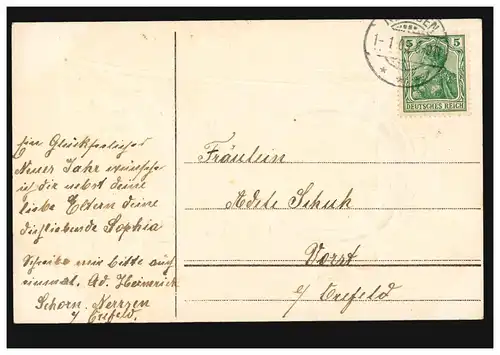 5 5
DEUTSCHES REICH
1-1 0
Ein Glückseeliches
Neues Jahr wünsche
ich dir nebst deine
liebe Eltern deine
dichliebende Sophia
Schreibe mir bitte auch
einmal. Ad. Heinrich
Schorn. Nerrzen
b/ Crefeld.
Fräulein
Adele Schuh
Vorst
b/ Crefeld